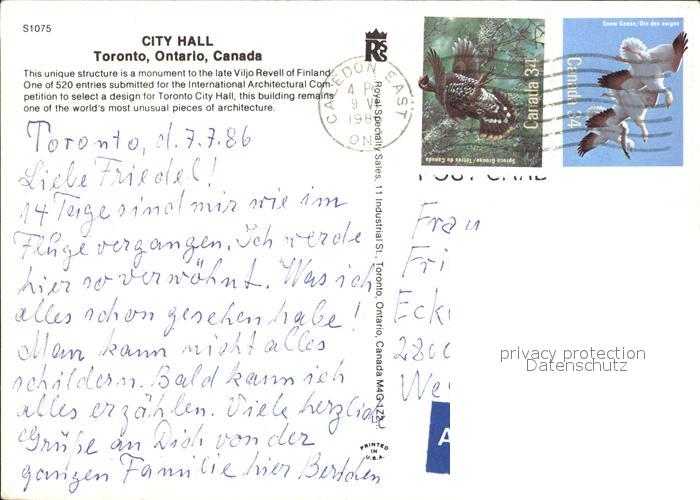 S1075
CITY HALL
Toronto, Ontario, Canada
This unique structure is a monument to the late Viljo Revell of Finland.
One of 520 entries submitted for the International Architectural Com-
petition to select a design for Toronto City Hall, this building remains
one of the world's most unusual pieces of architecture.
Toronto, d. 7.7.86
Liebe Friedel!
14 Tage sind mir wie im
Fluge vergangen. Ich werde
hier so verwöhnt. Was ich
alles schon gesehen habe!
Man kann nicht alles
schildern. Bald kann ich
alles erzählen. Viele herzliche
Grüße an Dich von der
ganzen Familie hier
Royal Specialty Sales, 11 Industrial St., Toronto, Ontario, Canada M4G 1Z2
PRINTED
IN
U.S.A.
CALEDON EAST
4 P
9 V
198
ON
Canada 34
Spruce Grouse/Tétras du Canada
Snow Goose/Oie des neiges
Canada 34
POST CARD
Frau
Fri
Eck
280
We
A
privacy protection
Datenschutz